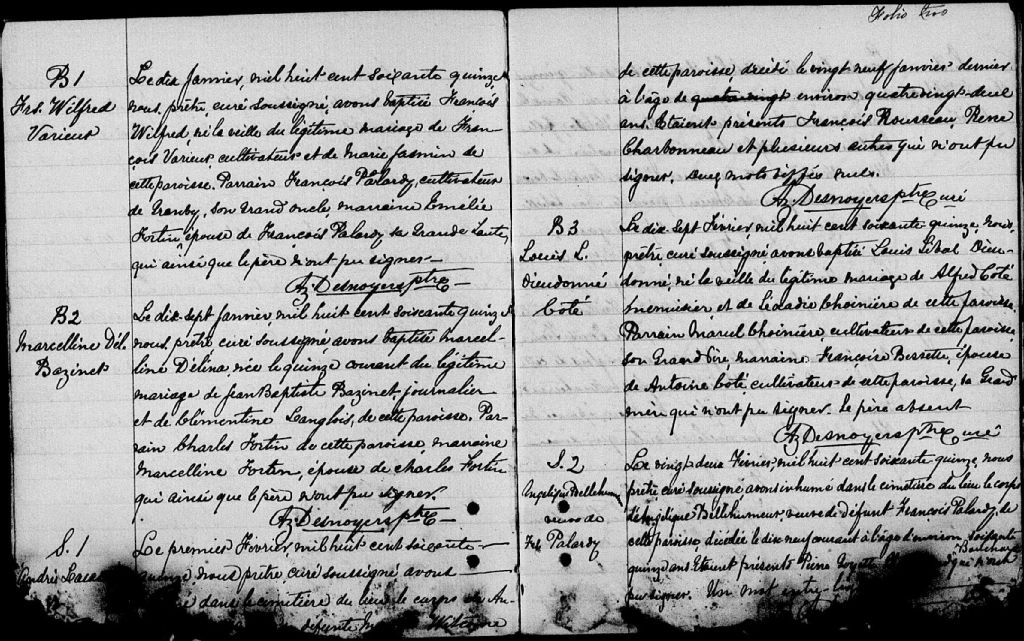 B 1
Frs. Wilfred
Varieur
Le dix Janvier, mil huit cent soixante quinze,
nous, prêtre, curé soussigné, avons baptisé François
Wilfred, né la veille du légitime mariage de Fran-
çois Varieur, cultivateur et de Marie Jasmin de
cette paroisse. Parrain François Palardy, cultivateur
de Granby, son Grand oncle, marraine Emélie
Fortin, épouse de François Palardy sa Grande Tante,
qui ainsi que le père n'ont pu signer—
Az. Desnoyers ptre C—
B 2
Marcelline Dél.
Bazinet
Le dix sept Janvier, mil huit cent soixante quinze
nous, prêtre curé soussigné, avons baptisé Marcel-
line Délina née le quinze courant du légitime
mariage de Jean Baptiste Bazinet journalier
et de Clémentine Langlois, de cette paroisse. Par-
rain Charles Fortin de cette paroisse, marraine
Marcelline Fortin, épouse de Charles Fortin
qui ainsi que le père n'ont pu signer.
Az. Desnoyers ptre C—
S. 1
André
Le premier Février, mil huit cent soixante—
quinze, nous prêtre curé soussigné avons
dans le cimetière du lieu le corps de An-
défunte
Folio two
de cette paroisse, décédé le vingt neuf janvier dernier
à l'âge de quatrevingt environ quatrevingt-deux
ans. Etaient présents François Rousseau, René
Charbonneau et plusieurs autres qui n'ont pu
signer. mots biffés nuls.
Az Desnoyers ptre Curé
B 3
Louis L.
Dieudonné
Coté
Le dix sept Février, mil huit cent soixante quinze, nous,
prêtre curé soussigné, avons baptisé Louis Dieu-
donné, né la veille du légitime mariage de Alfred Coté
menuisier, et de Léocadie Choinière de cette paroisse.
Parrain Marcel Choinière, cultivateur de cette paroisse,
son Grand Père marraine Françoise Berrette, épouse
de Antoine Coté, cultivateur de cette paroisse, sa Grand
mère qui n'ont pu signer. le père absent
Az Desnoyers ptre Curé
S. 2
Angelique Bellehumeur
veuve de
Frs Palardy
Le vingt deux Février, mil huit cent soixante quinze, nous
prêtre curé soussigné avons inhumé dans le cimetière du lieu le corps
d'Angélique Bellehumeur, veuve de défunt François Palardy, de
cette paroisse, décédée le dix neuf courant à l'âge d'environ soixante
quinze ans. Etaient présents Pierre qui n'ont
pu signer. Un mot entre